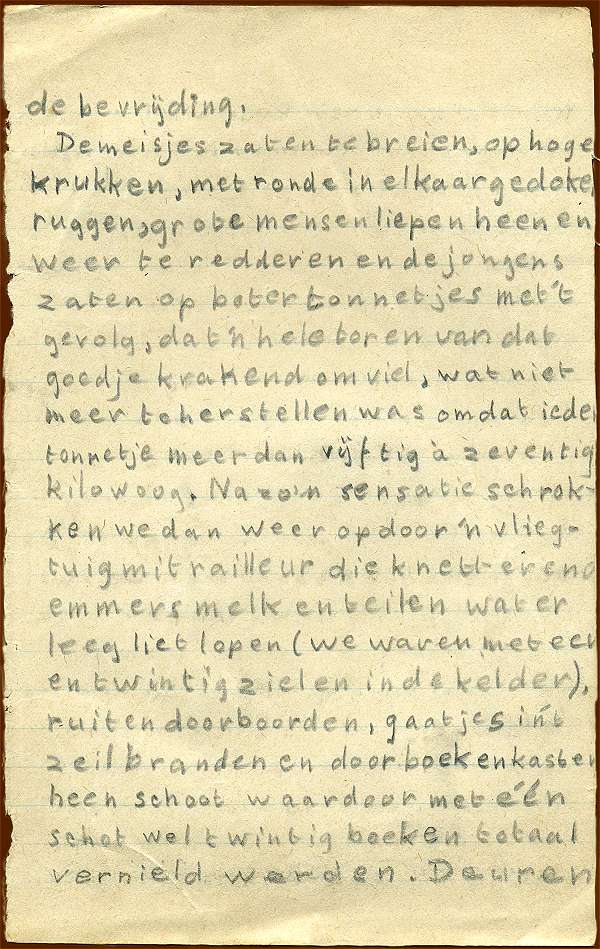 de bevrijding.
De meisjes zaten te breien, op hoge
krukken, met ronde in elkaar gedoke
ruggen, grote mensen liepen heen en
weer te redderen en de jongens
zaten op botertonnetjes met 't
gevolg, dat 'n hele toren van dat
goedje krakend omviel, wat niet
meer te herstellen was omdat ieder
tonnetje meer dan vijftig à zeventig
kilo woog. Na zo'n sensatie schrok-
ken we dan weer op door 'n vlieg-
tuigmitrailleur die knetterend
emmers melk en teilen water
leeg liet lopen (we waren met een
en twintig zielen in de kelder),
ruiten doorboorden, gaatjes in 't
zeil branden en door boekenkasten
heen schoot waardoor met één
schot wel twintig boeken totaal
vernield werden. Deuren